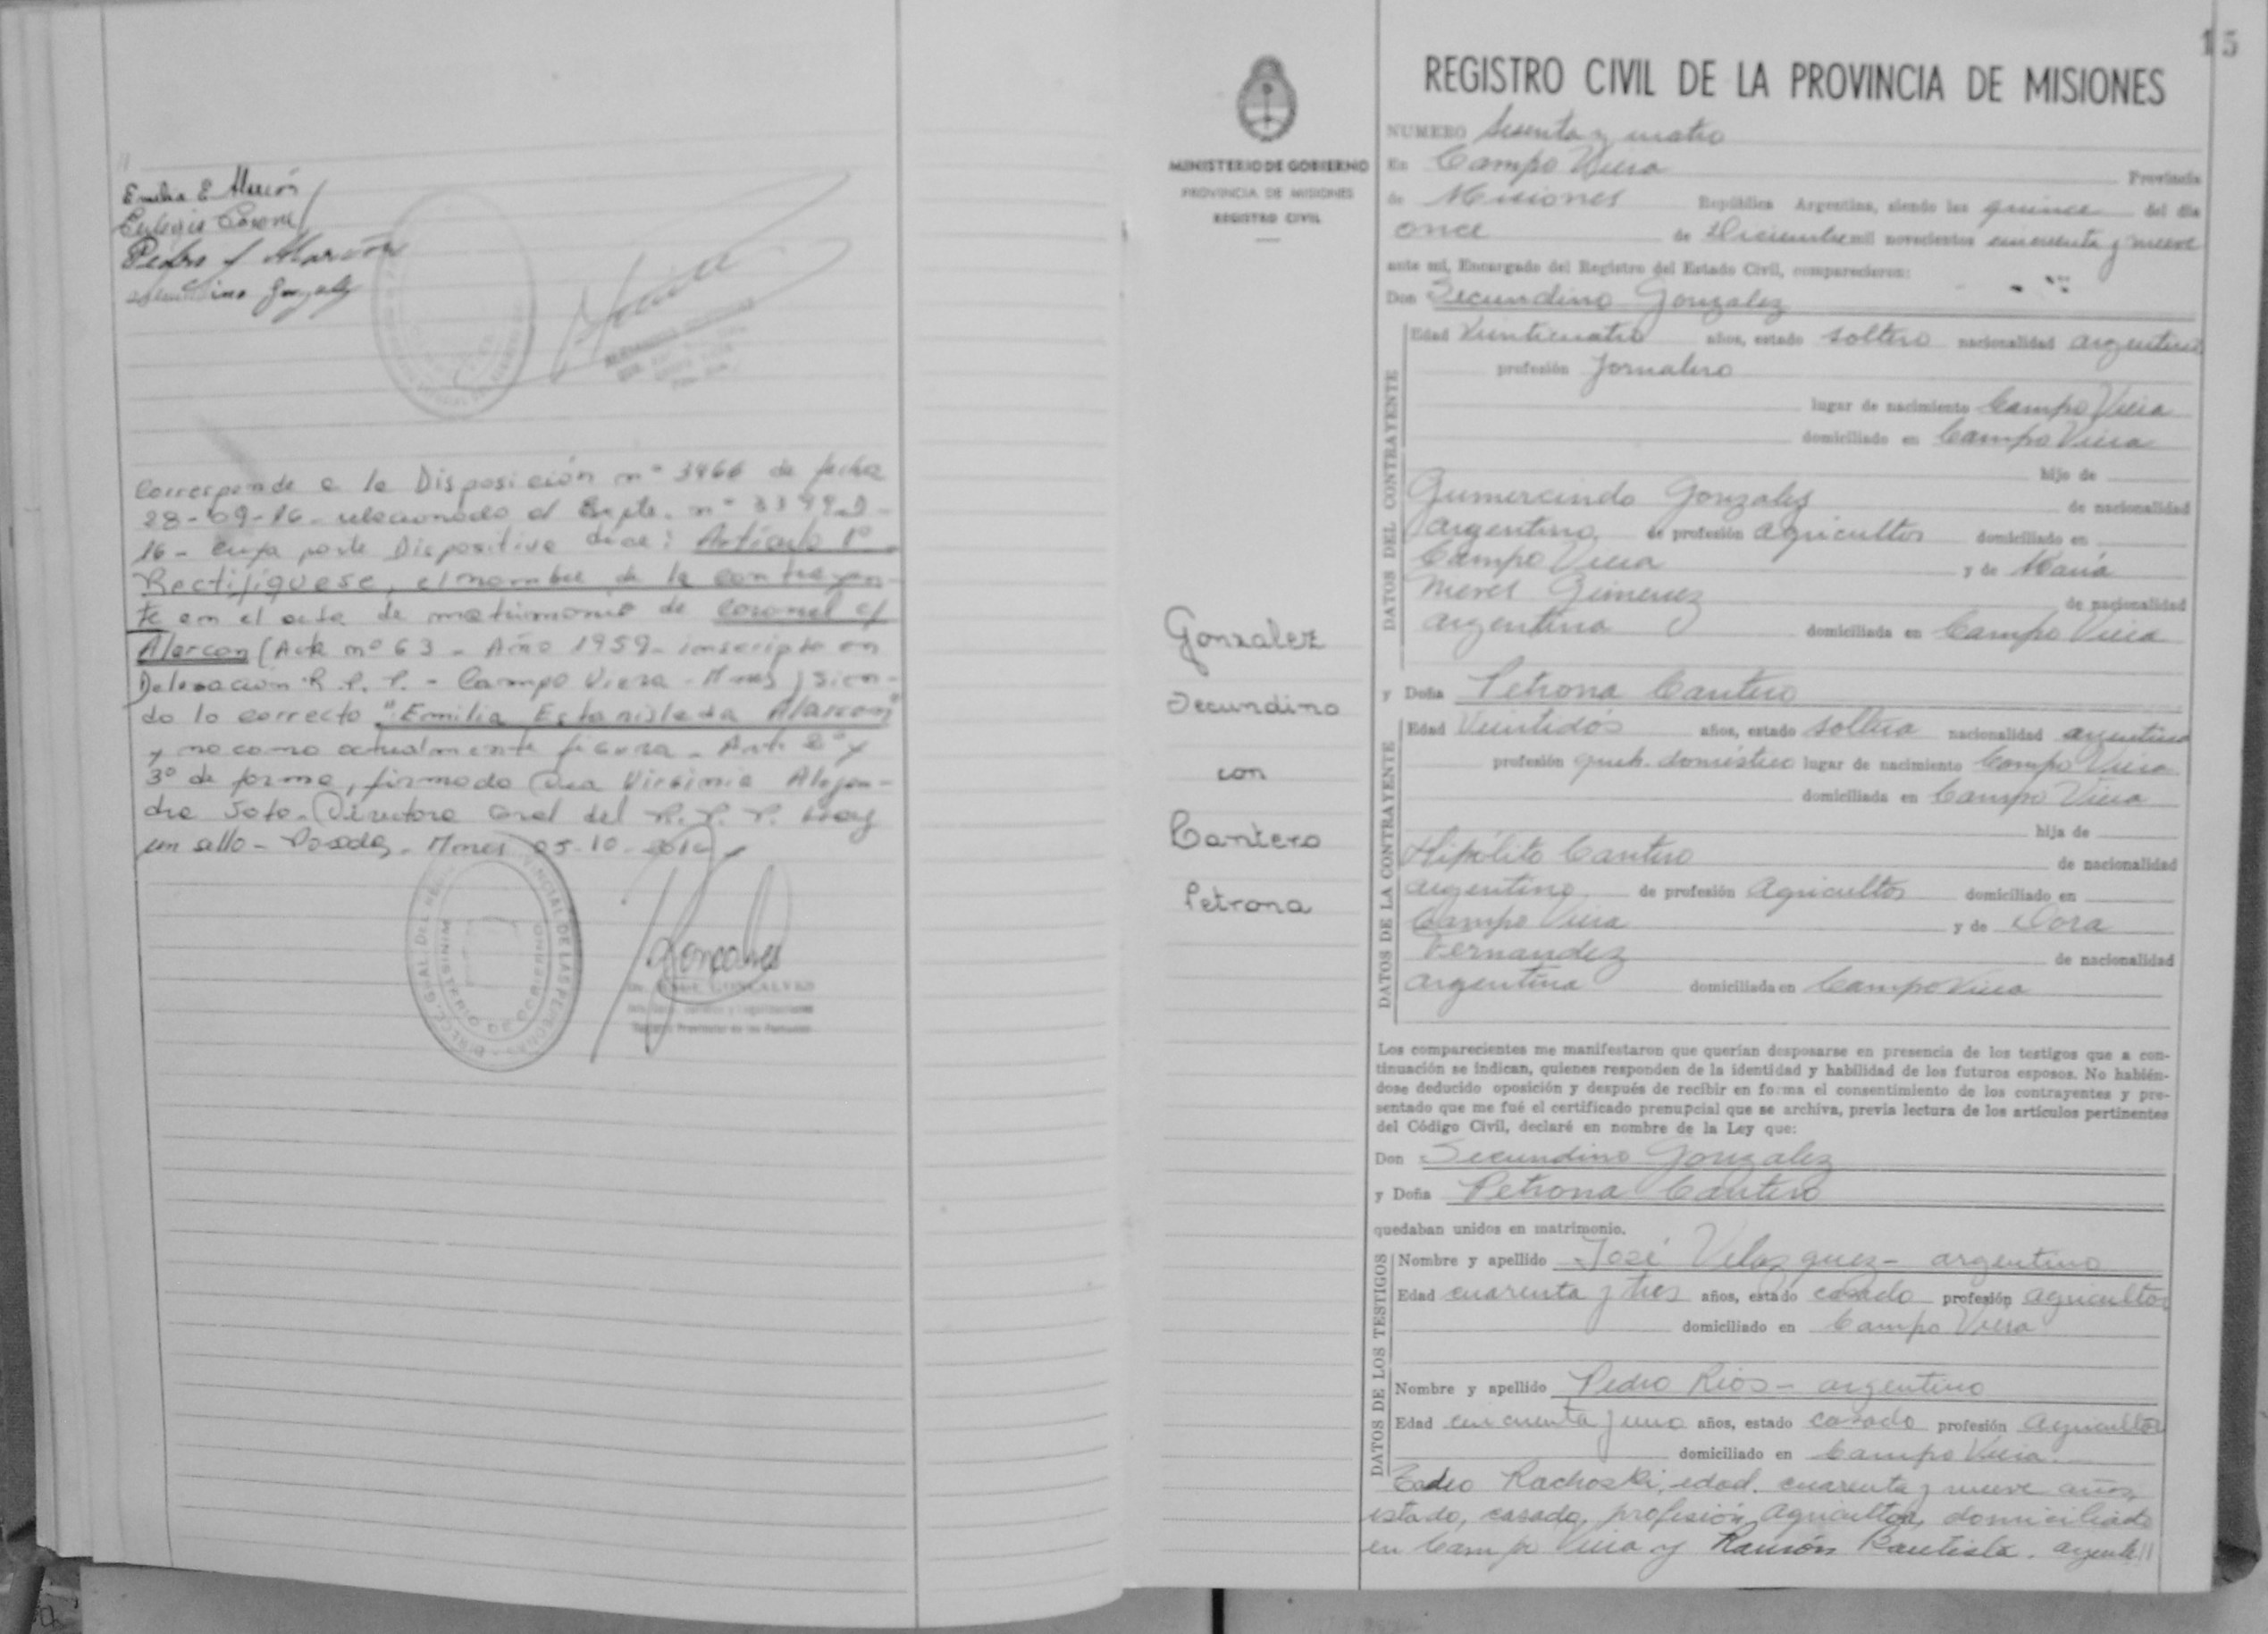 Emilia E. Alarcón
Pedro J. Alarcón
Secundino Gonzalez
Corresponde a la Disposición nº 3466 de fecha
28-09-16 - relacionado al Expte. nº
16 - cuya parte Dispositiva dice: Artículo 1º
Rectifíquese, el nombre de la contrayen-
te en el acta de matrimonio de Coronel c/
Alarcon (Acta nº 63 - Año 1959 - inscripta en
Delegación R.P.P. - Campo Viera - Mnes) sien-
do lo correcto "Emilia Estanislada Alarcon"
y no como actualmente figura - Art. 2º y
3º de forma, firmado Dra Virginia Alejan-
dra Soto - Directora Gral del R.P.P. hay
un sello - Posadas - Mnes 05-10-2016
Goncalves
GONCALVES
15
MINISTERIO DE GOBIERNO
PROVINCIA DE MISIONES
REGISTRO CIVIL
Gonzalez
Secundino
con
Cantero
Petrona
REGISTRO CIVIL DE LA PROVINCIA DE MISIONES
NUMERO Sesenta y cuatro
En Campo Viera Provincia
de Misiones República Argentina, siendo las quince del día
once de Diciembre mil novecientos cincuenta y nueve
ante mi, Encargado del Registro del Estado Civil, comparecieron:
Don Secundino Gonzalez
DATOS DEL CONTRAYENTE
Edad Veinticuatro años, estado soltero nacionalidad argentina
profesión Jornalero
lugar de nacimiento Campo Viera
domiciliado en Campo Viera
hijo de
Gumercindo Gonzalez de nacionalidad
argentino de profesión agricultor domiciliado en
Campo Viera y de María
Nieves Gimenez de nacionalidad
argentina domiciliada en Campo Viera
y Doña Petrona Cantero
DATOS DE LA CONTRAYENTE
Edad Veintidós años, estado soltera nacionalidad argentina
profesión queh. doméstico lugar de nacimiento Campo Viera
domiciliada en Campo Viera
hija de
Hipólito Cantero de nacionalidad
argentino de profesión Agricultor domiciliado en
Campo Viera y de Dora
Fernandez de nacionalidad
argentina domiciliada en Campo Viera
Los comparecientes me manifestaron que querían desposarse en presencia de los testigos que a con-
tinuación se indican, quienes responden de la identidad y habilidad de los futuros esposos. No habién-
dose deducido oposición y después de recibir en forma el consentimiento de los contrayentes y pre-
sentado que me fué el certificado prenupcial que se archiva, previa lectura de los artículos pertinentes
del Código Civil, declaré en nombre de la Ley que:
Don Secundino Gonzalez
y Doña Petrona Cantero
quedaban unidos en matrimonio.
DATOS DE LOS TESTIGOS
Nombre y apellido José Velazquez - argentino
Edad cuarenta y tres años, estado casado profesión agricultor
domiciliado en Campo Viera
Nombre y apellido Pedro Rios - argentino
Edad cincuenta y uno años, estado casado profesión agricultor
domiciliado en Campo Viera.
Tadeo Rachoski, edad. cuarenta y nueve años,
estado, casado, profesión agricultor, domiciliado
en Campo Viera y Ramón Bautista. argenti//